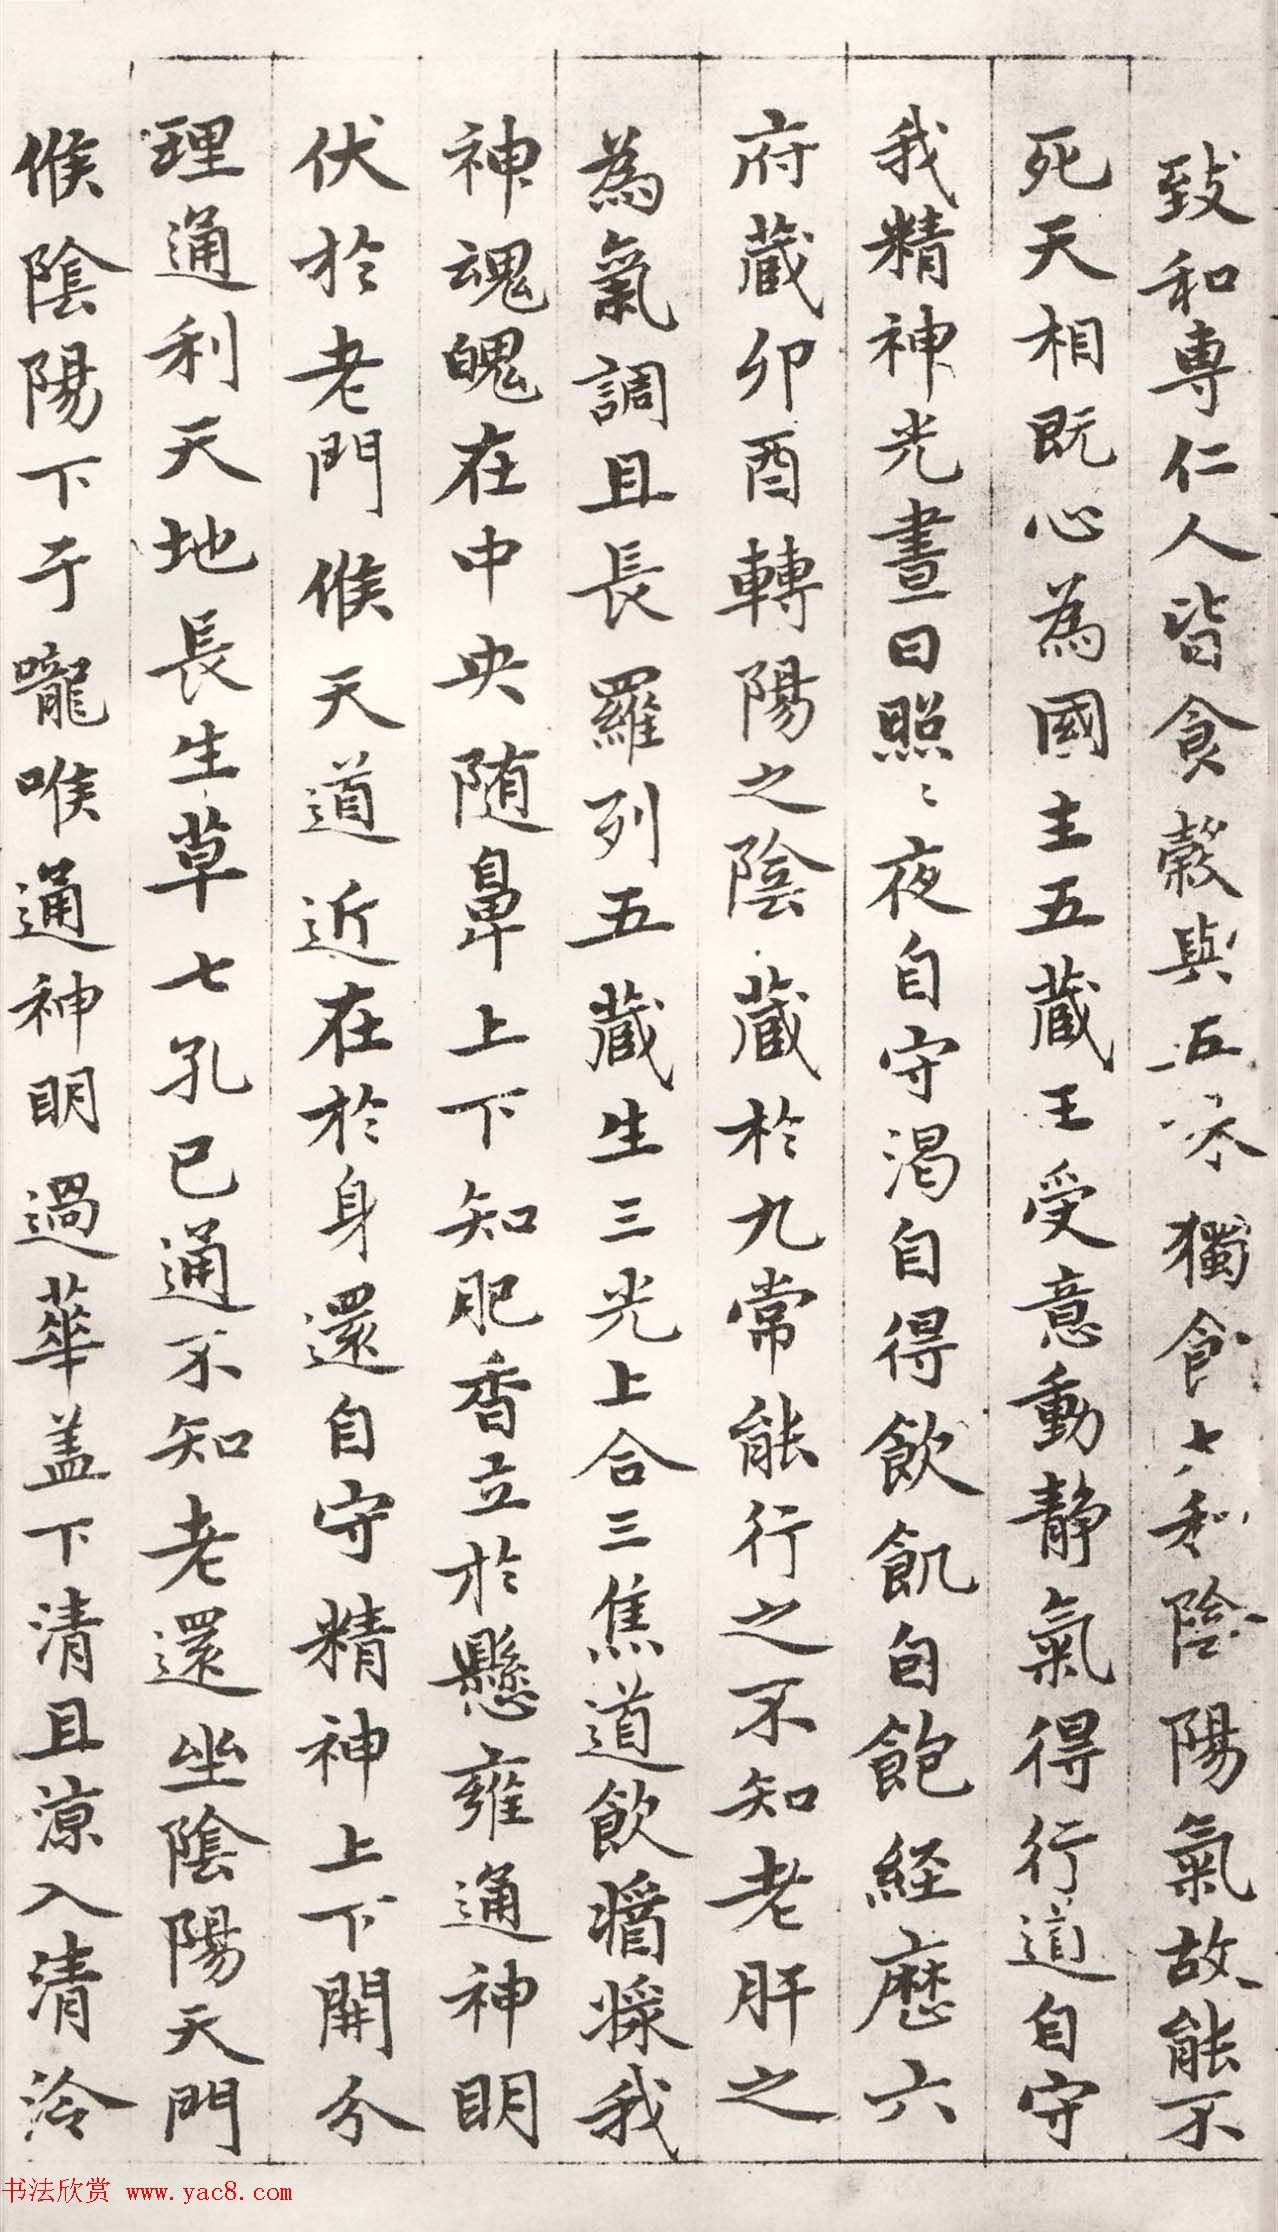 致和專仁人皆食穀與五味獨食七和陰陽氣故能不
死天相既心為國主五藏王受意動静氣得行道自守
我精神光晝日照〻夜自守渴自得飲飢自飽経歷六
府藏卯酉轉陽之陰藏於九常能行之不知老肝之
為氣調且長羅列五藏生三光上合三焦道飲醬漿我
神魂魄在中央随鼻上下知肥香立於懸雍通神明
伏於老門候天道近在於身還自守精神上下開分
理通利天地長生草七孔已通不知老還坐陰陽天門
候陰陽下于嚨喉通神明過華盖下清且涼入清泠
书法欣赏 www.yac8.com